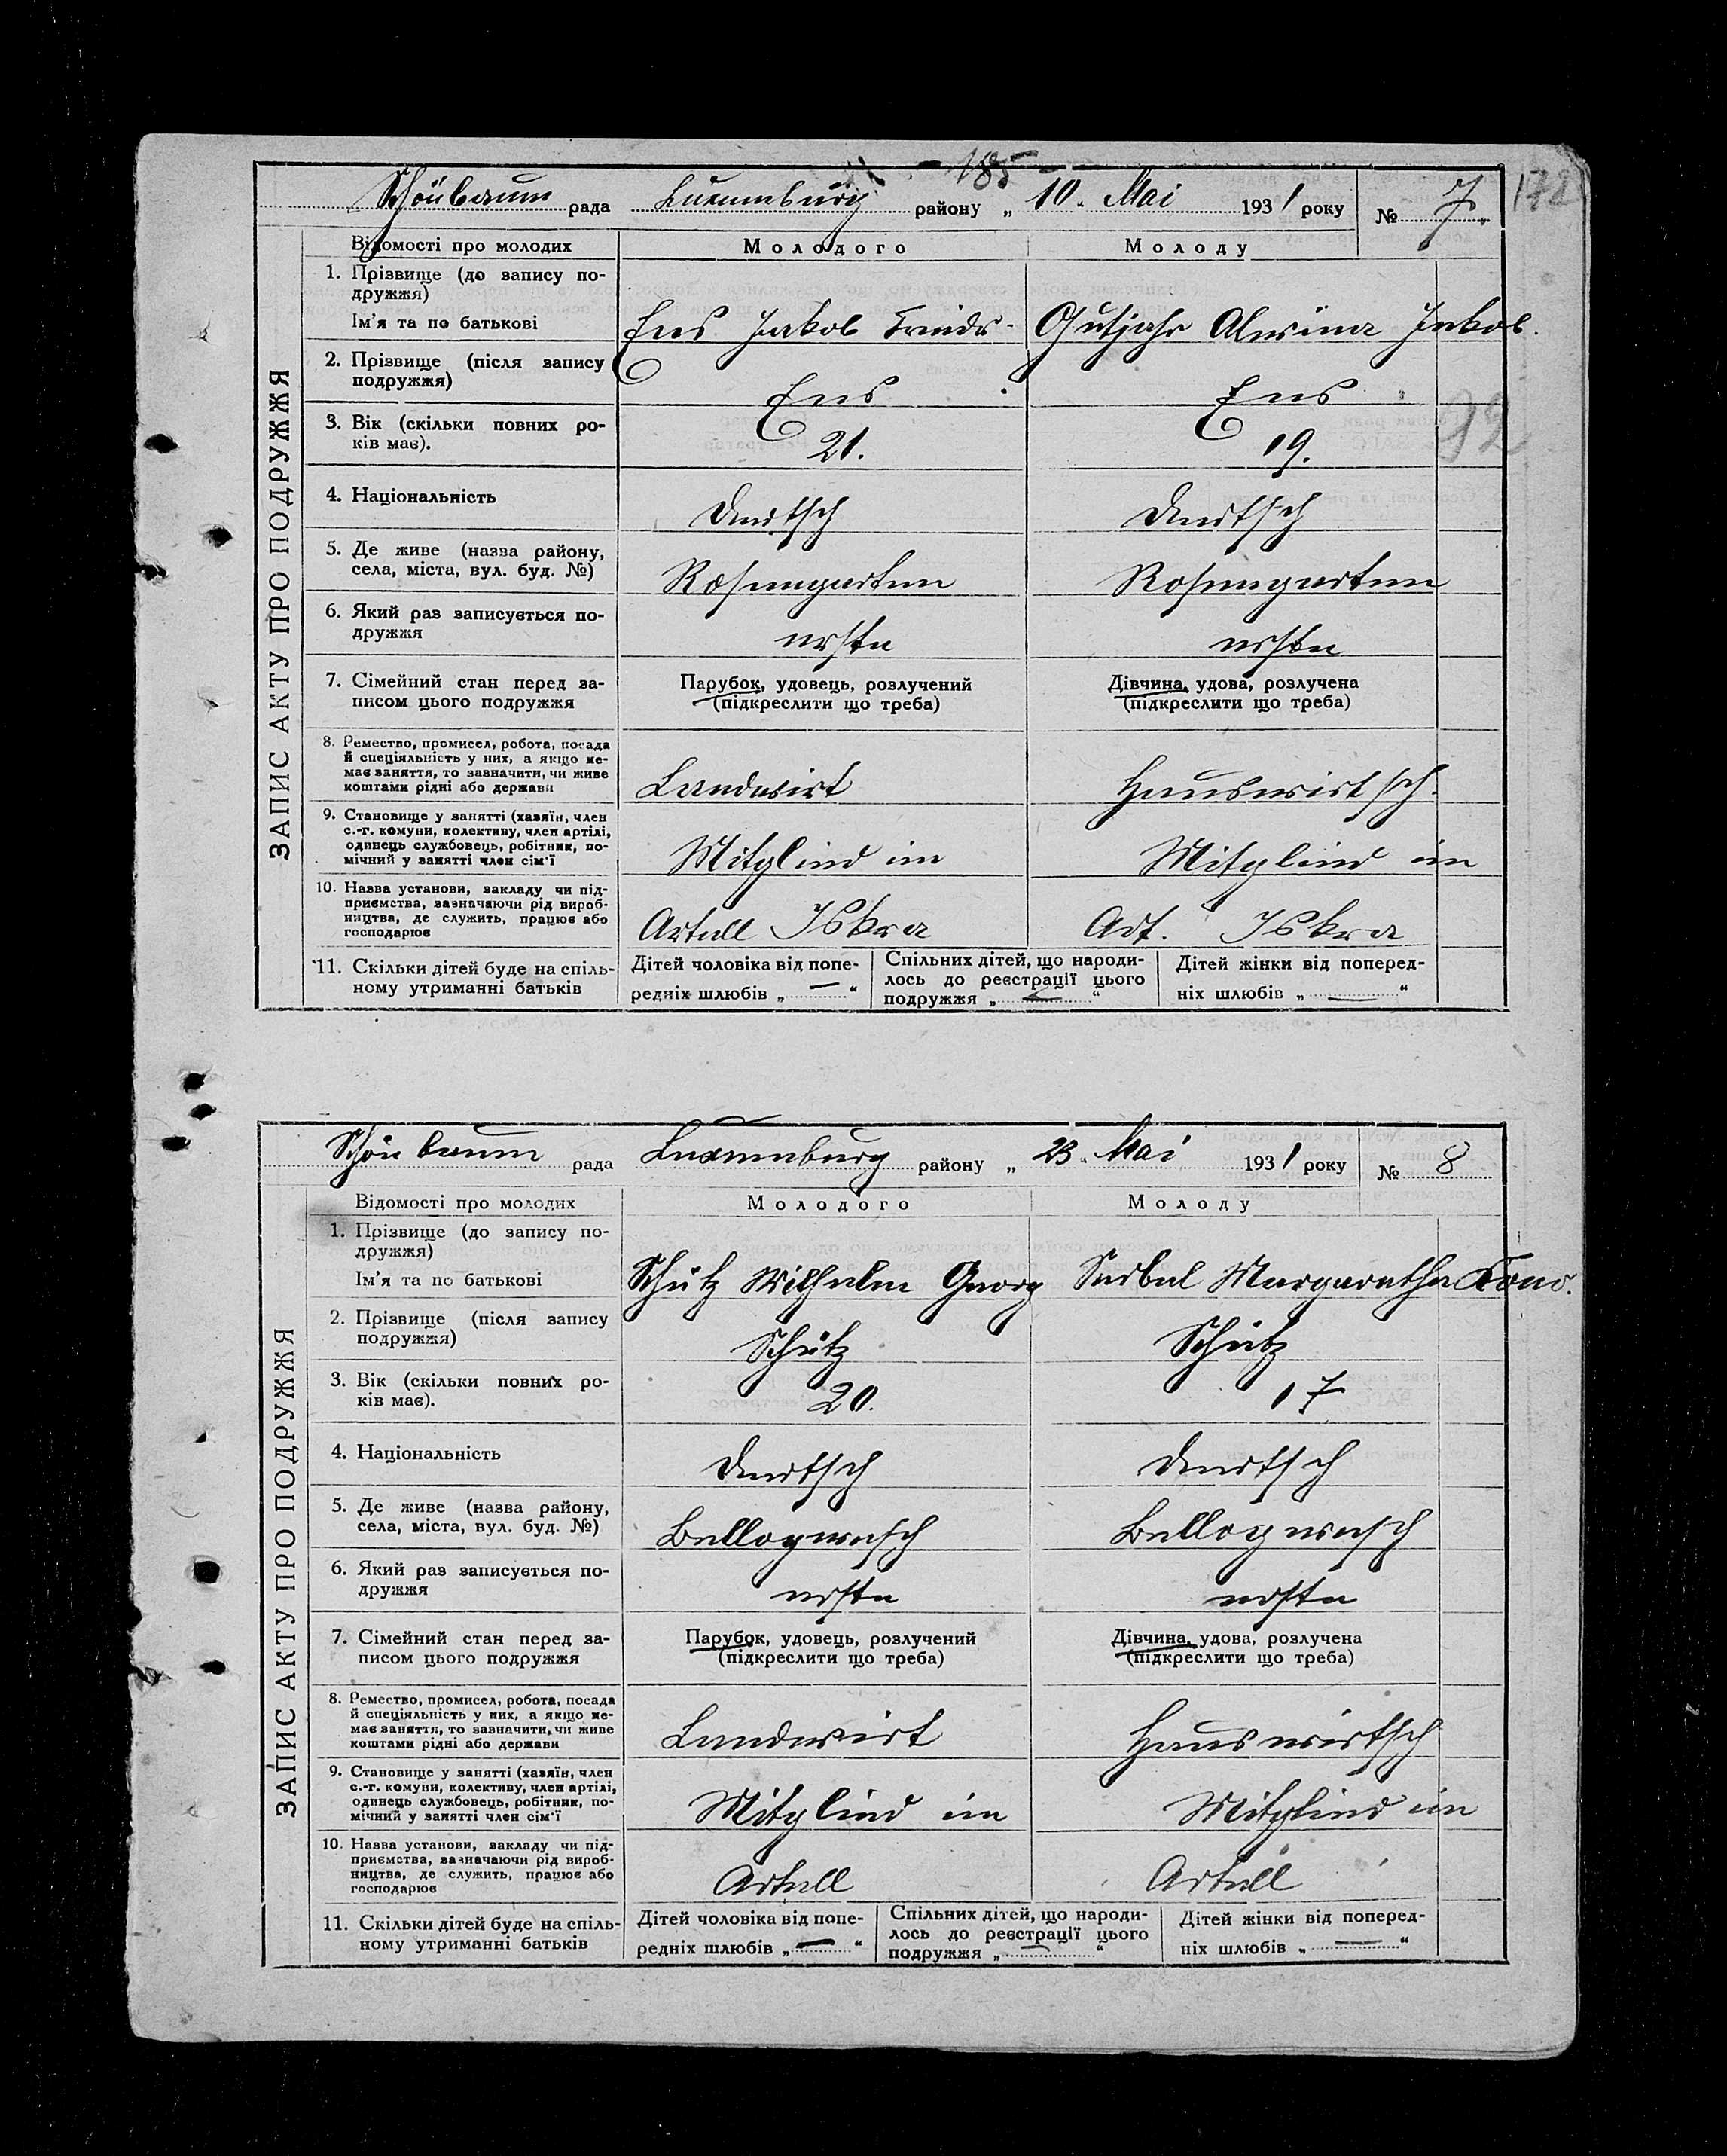 185
Schönbaum рада Luxemburg району „ 10. Mai 1931 року № 7. 172
Відомості про молодих Молодого Молоду
ЗАПИС АКТУ ПРО ПОДРУЖЖЯ
1. Прізвище (до запису по-
дружжя)
Ім'я та по батькові Ens Jakob Friedr. Gutjahr Alwina Jakob.
2. Прізвище (після запису
подружжя) Ens Ens
92
3. Вік (скільки повних ро-
ків має). 21. 19.
4. Національність Deutsch Deutsch
5. Де живе (назва району,
села, міста, вул. буд. №) Rosengarten Rosengarten
6. Який раз записується по-
дружжя erste erste
7. Сімейний стан перед за- Парубок, удовець, розлучений Дівчина, удова, розлучена
писом цього подружжя (підкреслити що треба) (підкреслити що треба)
8. Ремество, промисел, робота, посада
й спеціяльність у них, а якщо не-
має заняття, то зазначити, чи живе
коштами рідні або держави Landwirt Hauswirtsch.
9. Становище у занятті (хазяїн, член
с.-г. комуни, колективу, член артілі,
одинець службовець, робітник, по-
мічний у занятті член сім'ї Mitglied im Mitglied im
10. Назва установи, закладу чи під-
приємства, зазначаючи рід вироб-
ництва, де служить, працює або
господарює Artell Iskra Art. Iskra
11. Скільки дітей буде на спіль-
ному утриманні батьків
Дітей чоловіка від попе-
редніх шлюбів „ — “
Спільних дітей, що народи-
лось до реєстрації цього
подружжя „ — “
Дітей жінки від поперед-
ніх шлюбів „ — “
Schönbaum рада Luxemburg району „ 23. Mai 1931 року № 8
Відомості про молодих Молодого Молоду
ЗАПИС АКТУ ПРО ПОДРУЖЖЯ
1. Прізвище (до запису по-
дружжя)
Ім'я та по батькові Schütz Wilhelm Georg Seibel Margaretha Konr.
2. Прізвище (після запису
подружжя) Schütz Schütz
3. Вік (скільки повних ро-
ків має). 20. 17
4. Національність Deutsch Deutsch
5. Де живе (назва району,
села, міста, вул. буд. №) Bellogwesch Bellogwesch
6. Який раз записується по-
дружжя erste erste
7. Сімейний стан перед за- Парубок, удовець, розлучений Дівчина, удова, розлучена
писом цього подружжя (підкреслити що треба) (підкреслити що треба)
8. Ремество, промисел, робота, посада
й спеціяльність у них, а якщо не-
має заняття, то зазначити, чи живе
коштами рідні або держави Landwirt Hauswirtsch
9. Становище у занятті (хазяїн, член
с.-г. комуни, колективу, член артілі,
одинець службовець, робітник, по-
мічний у занятті член сім'ї Mitglied im Mitglied im
10. Назва установи, закладу чи під-
приємства, зазначаючи рід вироб-
ництва, де служить, працює або
господарює Artell Artell
11. Скільки дітей буде на спіль-
ному утриманні батьків
Дітей чоловіка від попе-
редніх шлюбів „ — “
Спільних дітей, що народи-
лось до реєстрації цього
подружжя „ — “
Дітей жінки від поперед-
ніх шлюбів „ — “